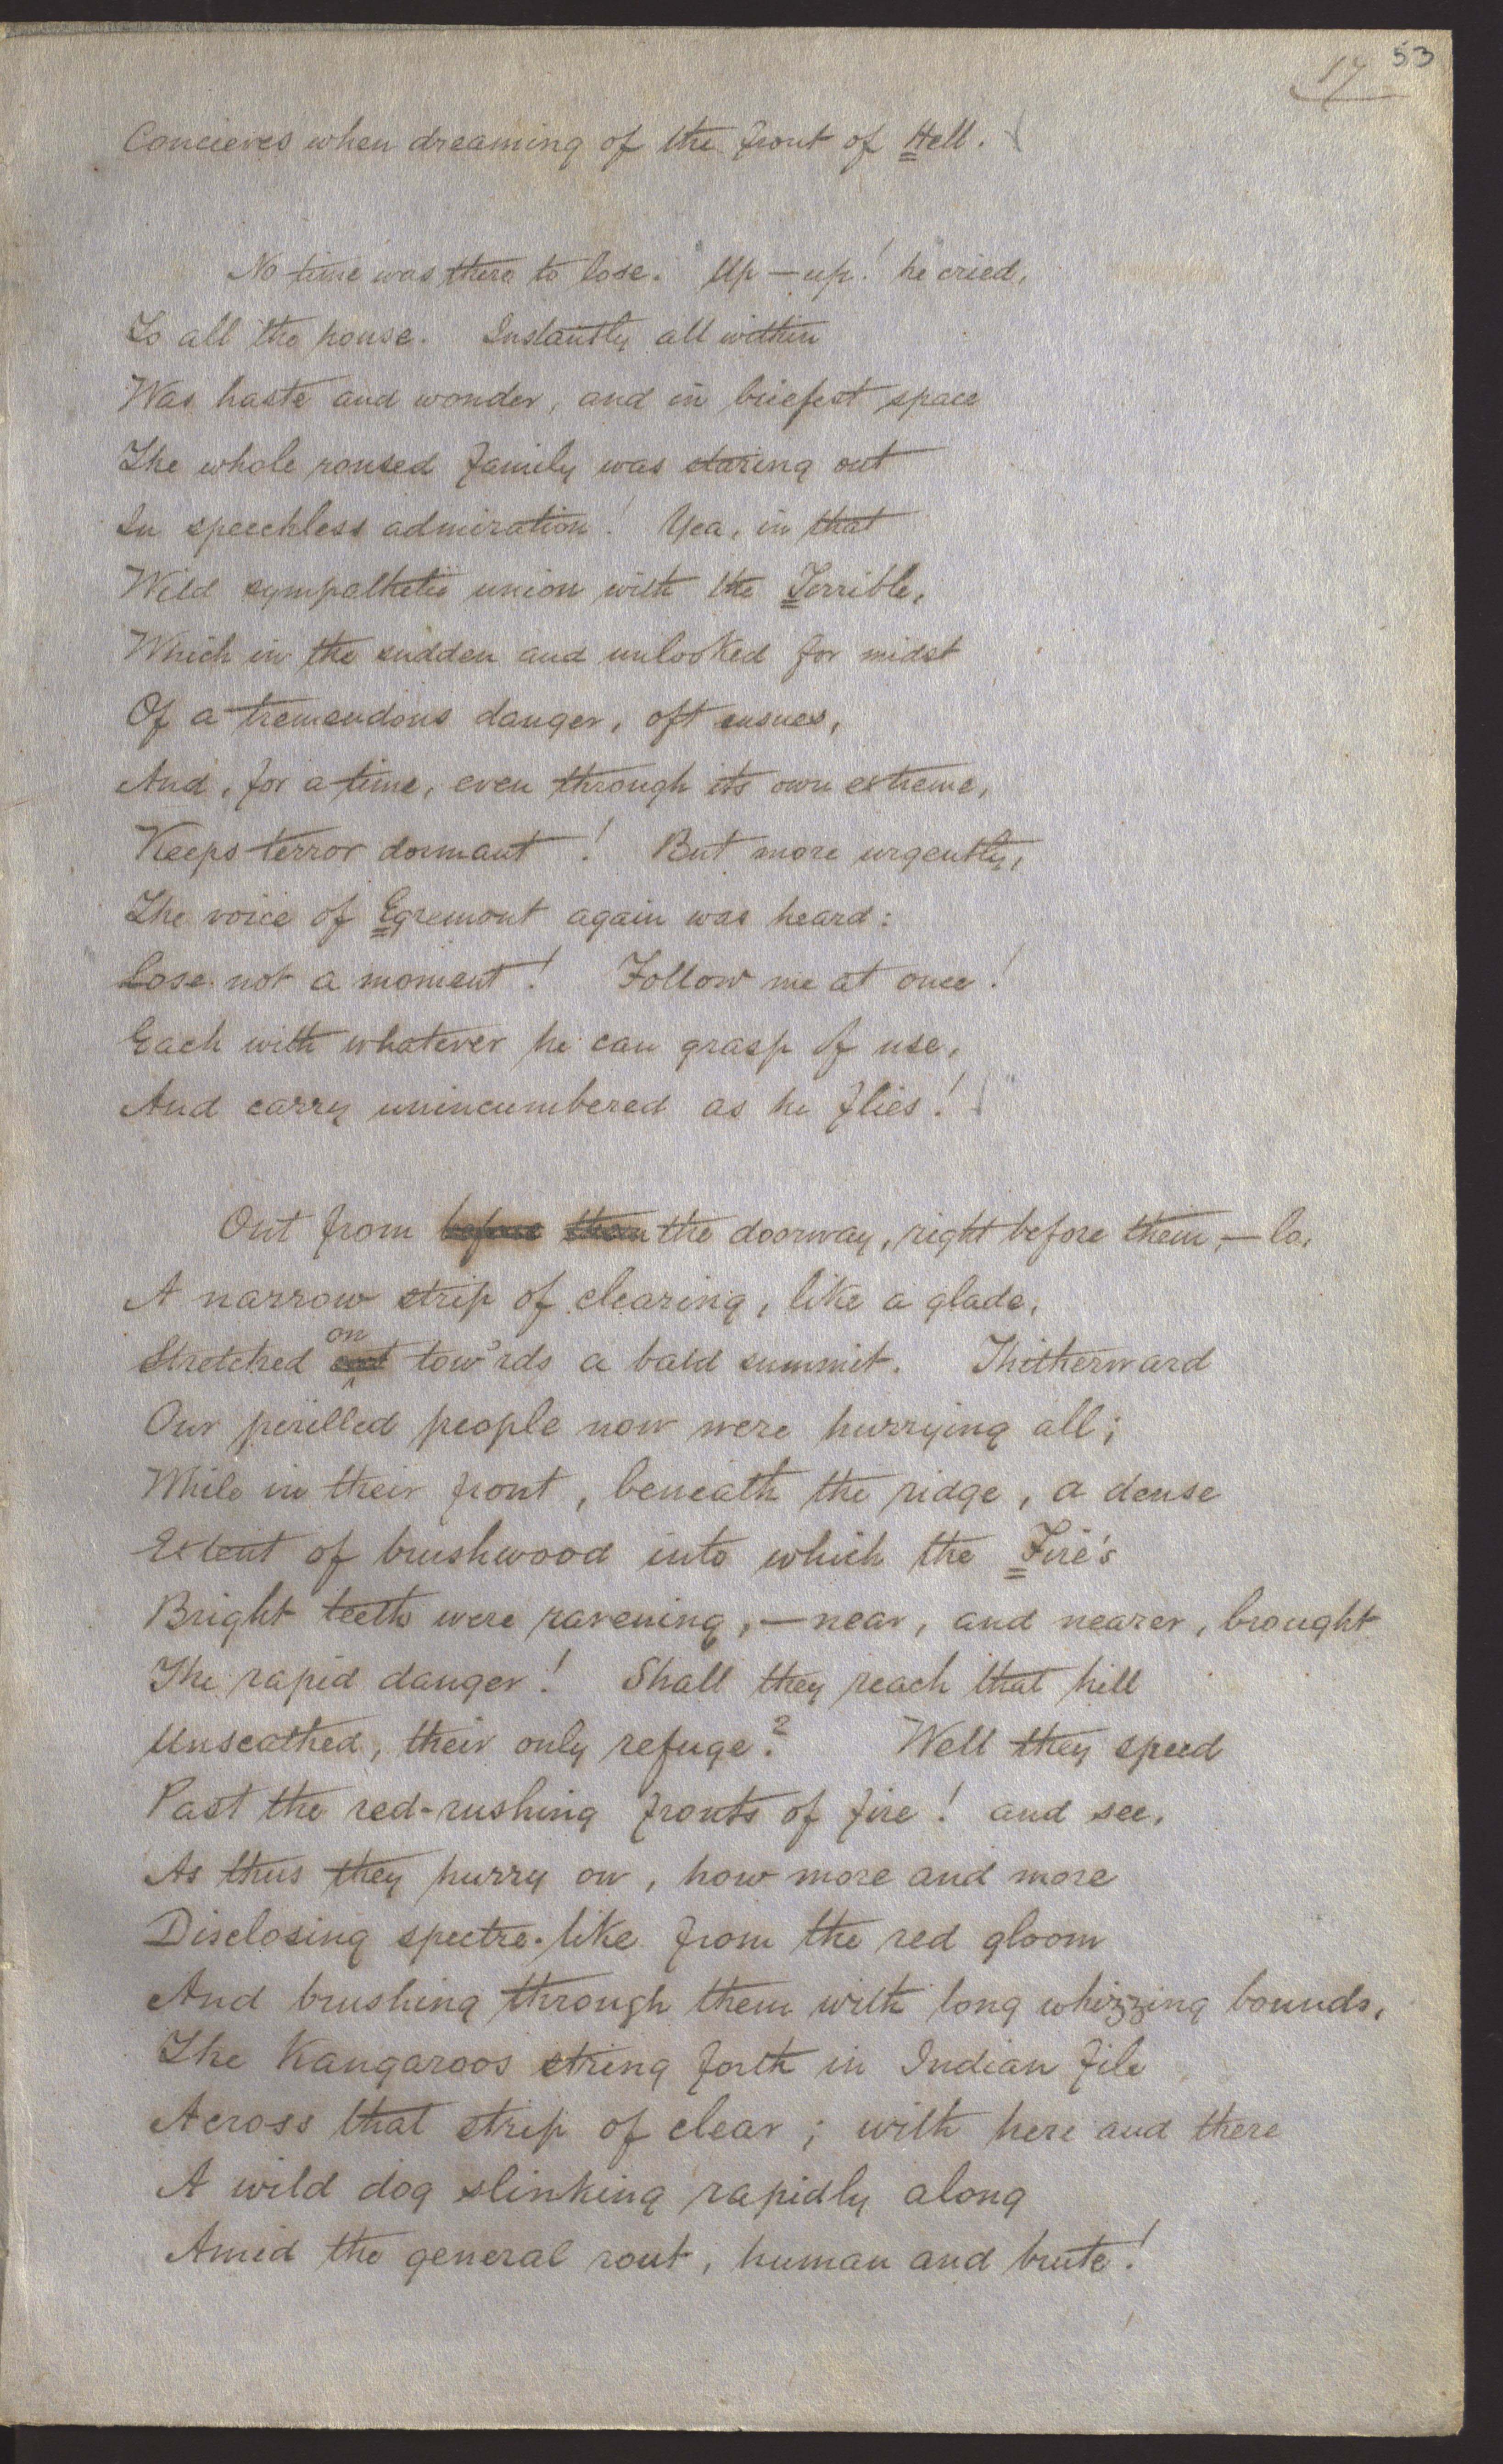 53
17
Concieves when dreaming of the front of Hell.
No time was there to lose. "Up — up! he cried,
To all the house. Instantly all within
Was haste and wonder, and in briefest space
The whole roused family was staring out
In speechless admiration! Yea, in that
Wild sympathetic union with the Terrible,
Which in the sudden and unlooked for midst
Of a tremendous danger, oft ensues,
And, for a time, even through its own extreme,
Keeps terror dormant! But more urgently,
The voice of Egremont again was heard:
Lose not a moment! Follow me at once!
Each with whatever he can grasp of use,
And carry unincumbered as he flies!"
Out from before them the doorway, right before them, — lo,
A narrow strip of clearing, like a glade,
on
Stretched out tow'rds a bald summit. Thitherward
Our perilled people now were hurrying all;
While in their front, beneath the ridge, a dense
Extent of brushwood into which the Fire's
Bright teeth were ravening, — near, and nearer, brought
The rapid danger! Shall they reach that hill
Unscathed, their only refuge? Well they speed
Past the red-rushing fronts of fire! and see,
As thus they hurry on, how more and more
Disclosing spectre-like from the red gloom
And brushing through them with long whizzing bounds,
The Kangaroos string forth in Indian file
Across that strip of clear; with here and there
A wild dog slinking rapidly along
Amid the general rout, human and brute!